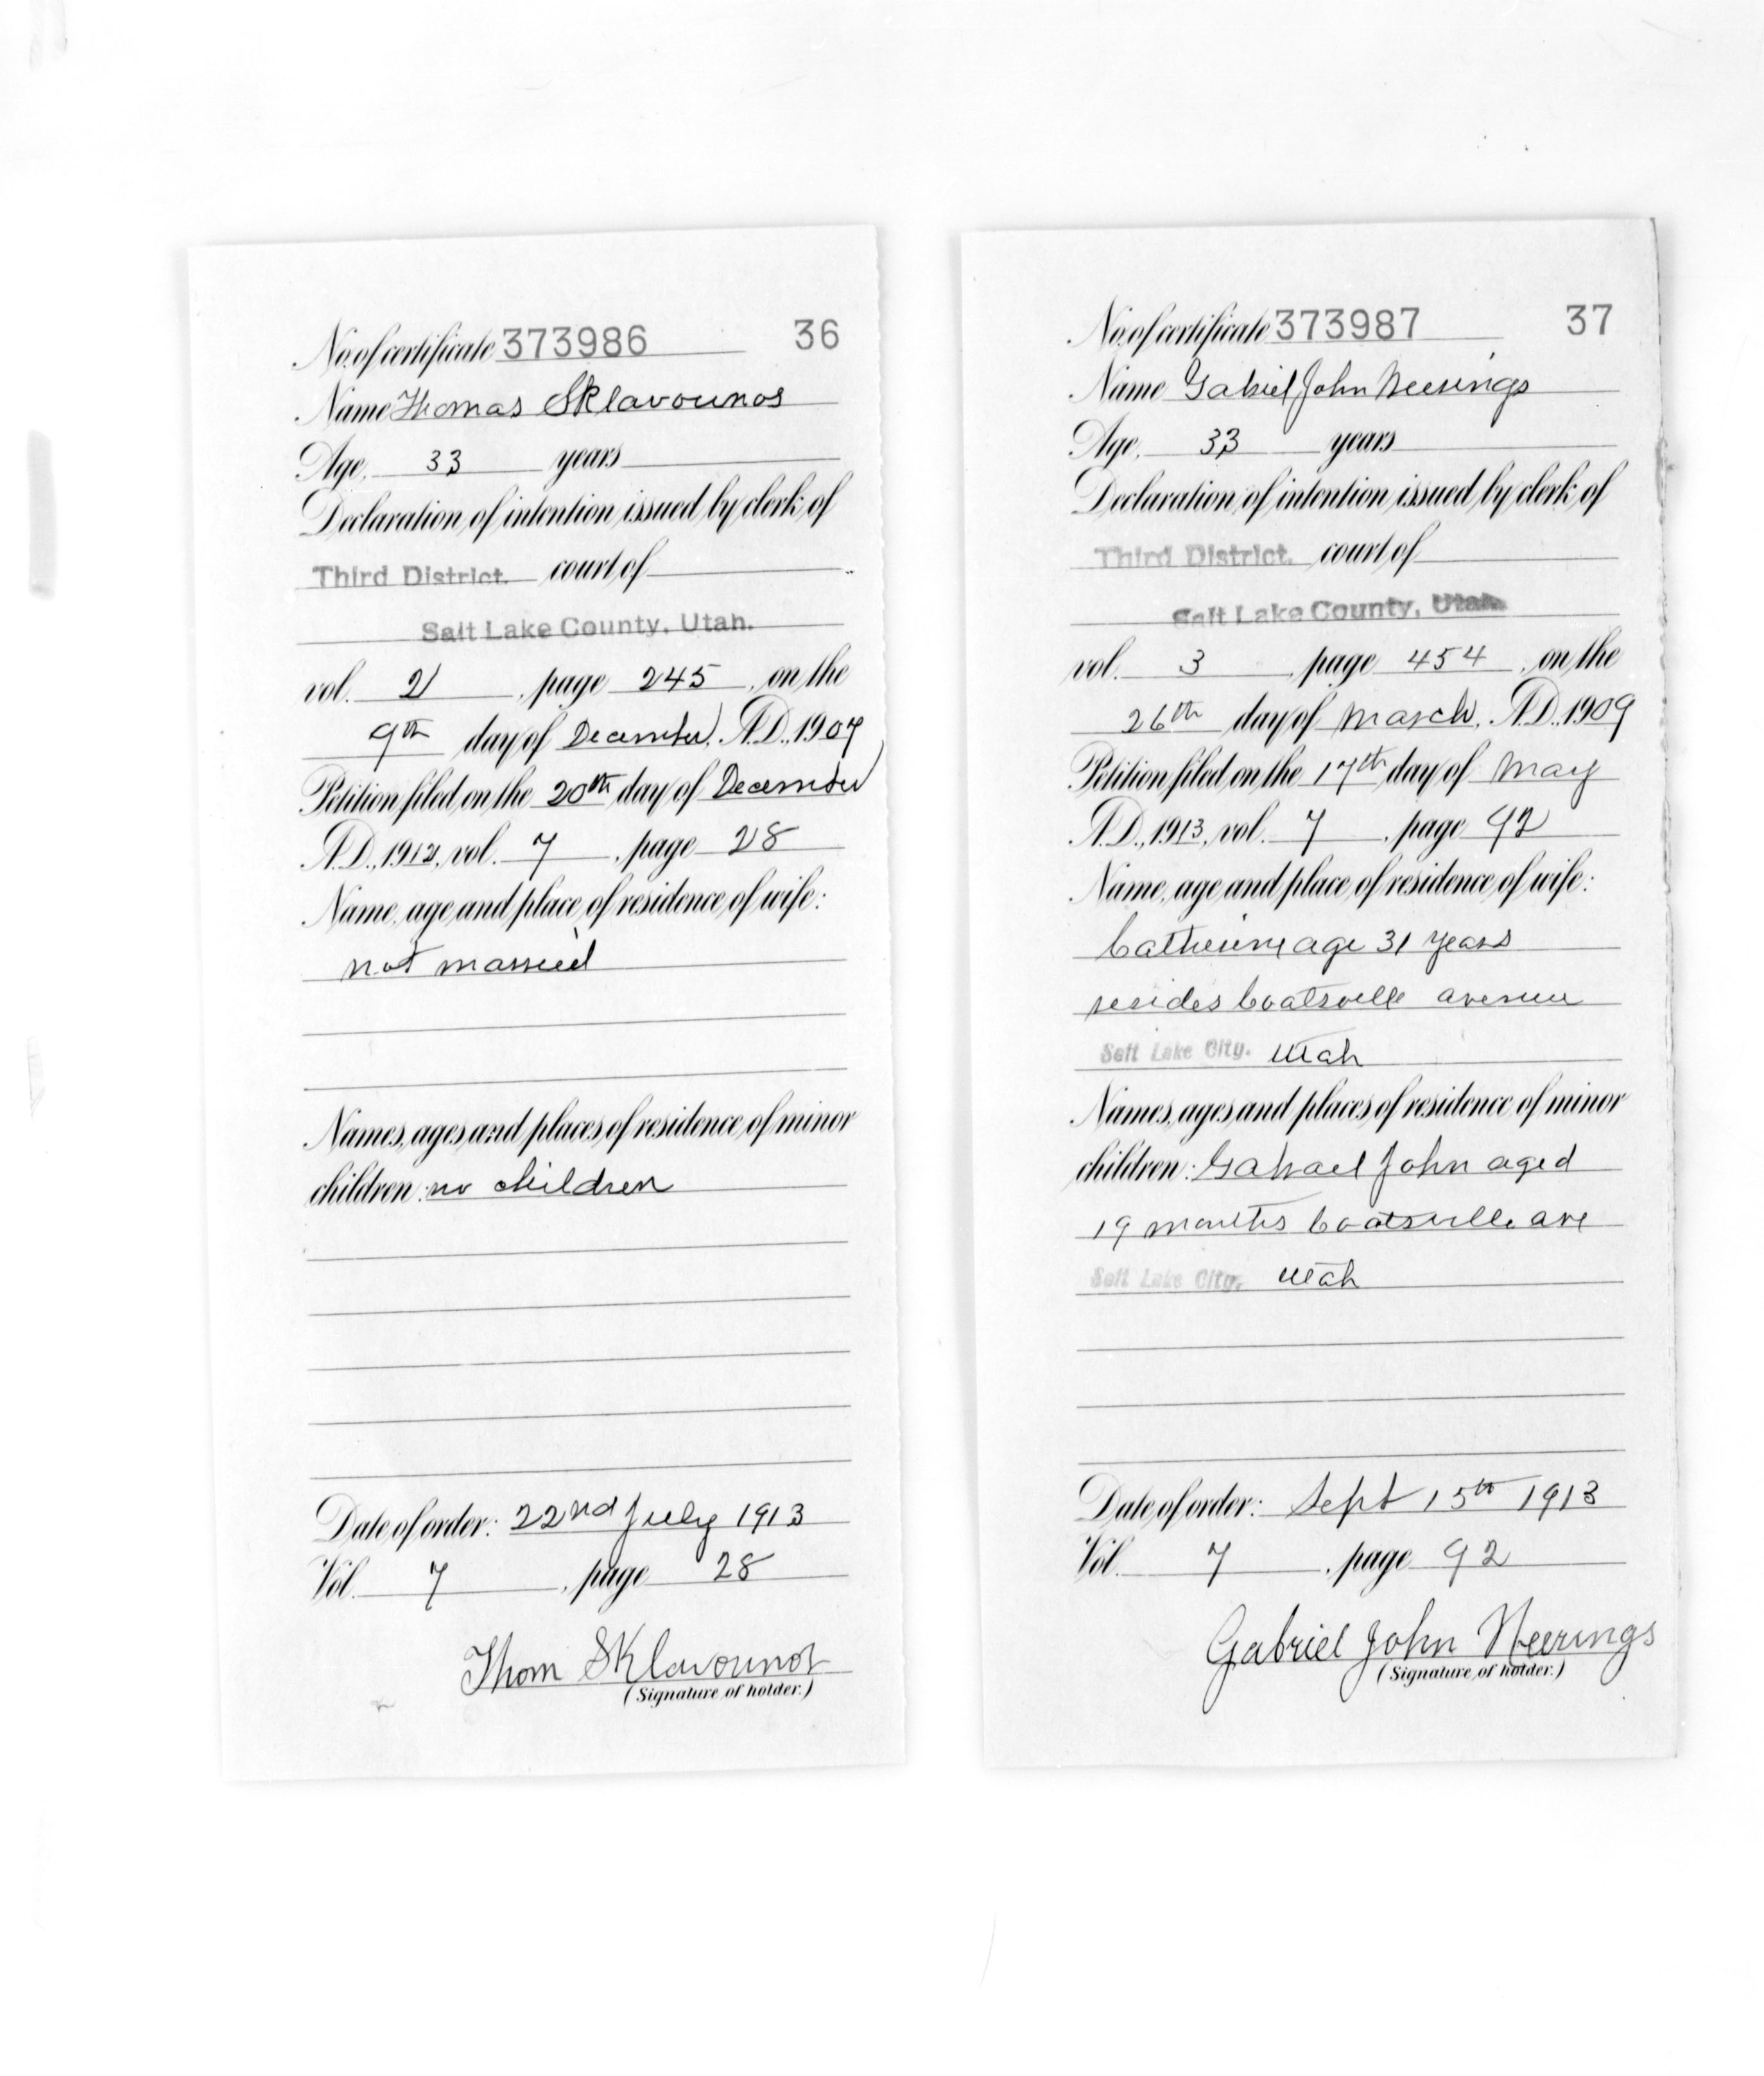 No. of certificate 373986 36
Name Thomas Sklavounos
Age, 33 years
Declaration of intention issued by clerk of
Third District. court of
Salt Lake County, Utah.
vol. 2, page 245, on the
9th day of December, A.D., 1907
Petition filed on the 20th day of December
A.D., 1912, vol. 7, page 28
Name, age and place of residence of wife:
not married
Names, ages and places of residence of minor
children: no children
Date of order: 22nd July 1913
Vol. 7, page 28
Thom Sklavounos
(Signature of holder.)
No. of certificate 373987 37
Name Gabriel John Neerings
Age, 33 years
Declaration of intention issued by clerk of
Third District. court of
Salt Lake County, Utah.
vol. 3, page 454, on the
26th day of March, A.D., 1909
Petition filed on the 17th day of May
A.D., 1913, vol. 7, page 92
Name, age and place of residence of wife:
Catherine age 31 years
resides Coatsville avenue
Salt Lake City. Utah
Names, ages and places of residence of minor
children: Gabriel John aged
19 months Coatsville ave
Salt Lake City. Utah
Date of order: Sept 15th 1913
Vol. 7, page 92
Gabriel John Neerings
(Signature of holder.)